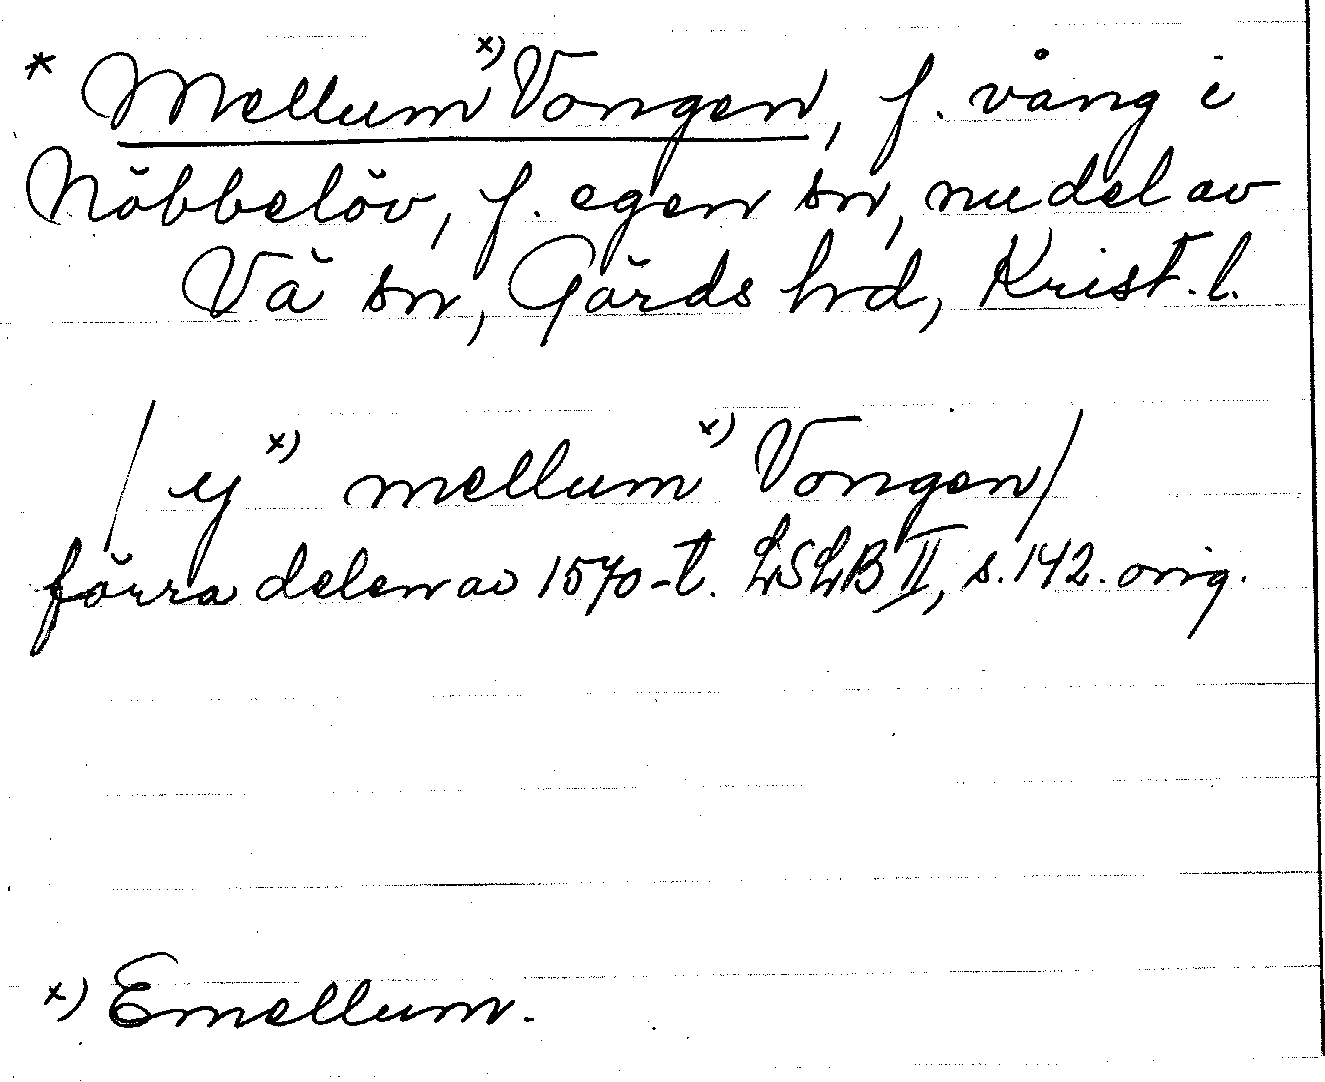 * Mellum x) Vongen, f. vång i
Nöbbelöv, f. egen sn, nu del av
Vä sn, Gärds hd, Krist. l.
/ y x) mellum x) Vongen /
förra delen av 1570-t. LSLB II, s. 142. orig.
x) Emellum.